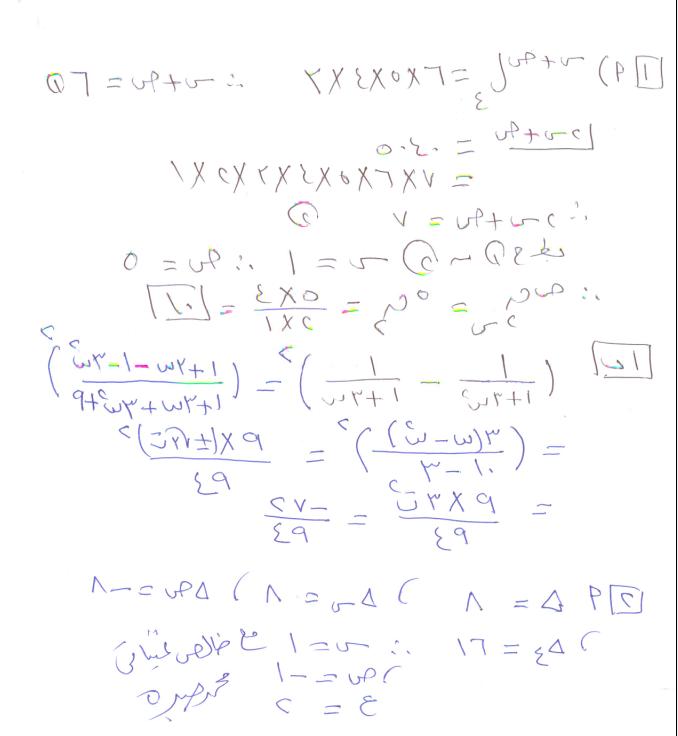 ١ أ) س+ص ل ٤ = ٦×٥×٤×٣ ∴ س+ص = ٦ ①
٢س+ص = ٥٠٤٠
= ٧×٦×٥×٤×٣×٢×١
∴ ٢س+ص = ٧ ②
بطرح ① من ② س = ١ ∴ ص = ٥
∴ ص ق ٢س = ٥ ق ٢ = ٥×٤ / ٢×١ = ١٠
١ب (١/(١+٣ω٢) − ١/(١+٣ω))٢ = ((١+٣ω−١−٣ω٢)/(١+٣ω+٣ω٢+٩))٢
= (٣(ω−ω٢)/(١٠−٣))٢ = ٩×(±√٣ ت)٢/٤٩
= ٩×٣ت٢/٤٩ = −٢٧/٤٩
٢ أ Δ = ٨ ، Δس = ٨ ، Δص = −٨
، Δع = ١٦ ∴ س = ١ مع خالص تحياتى
، ص = −١
ع = ٢